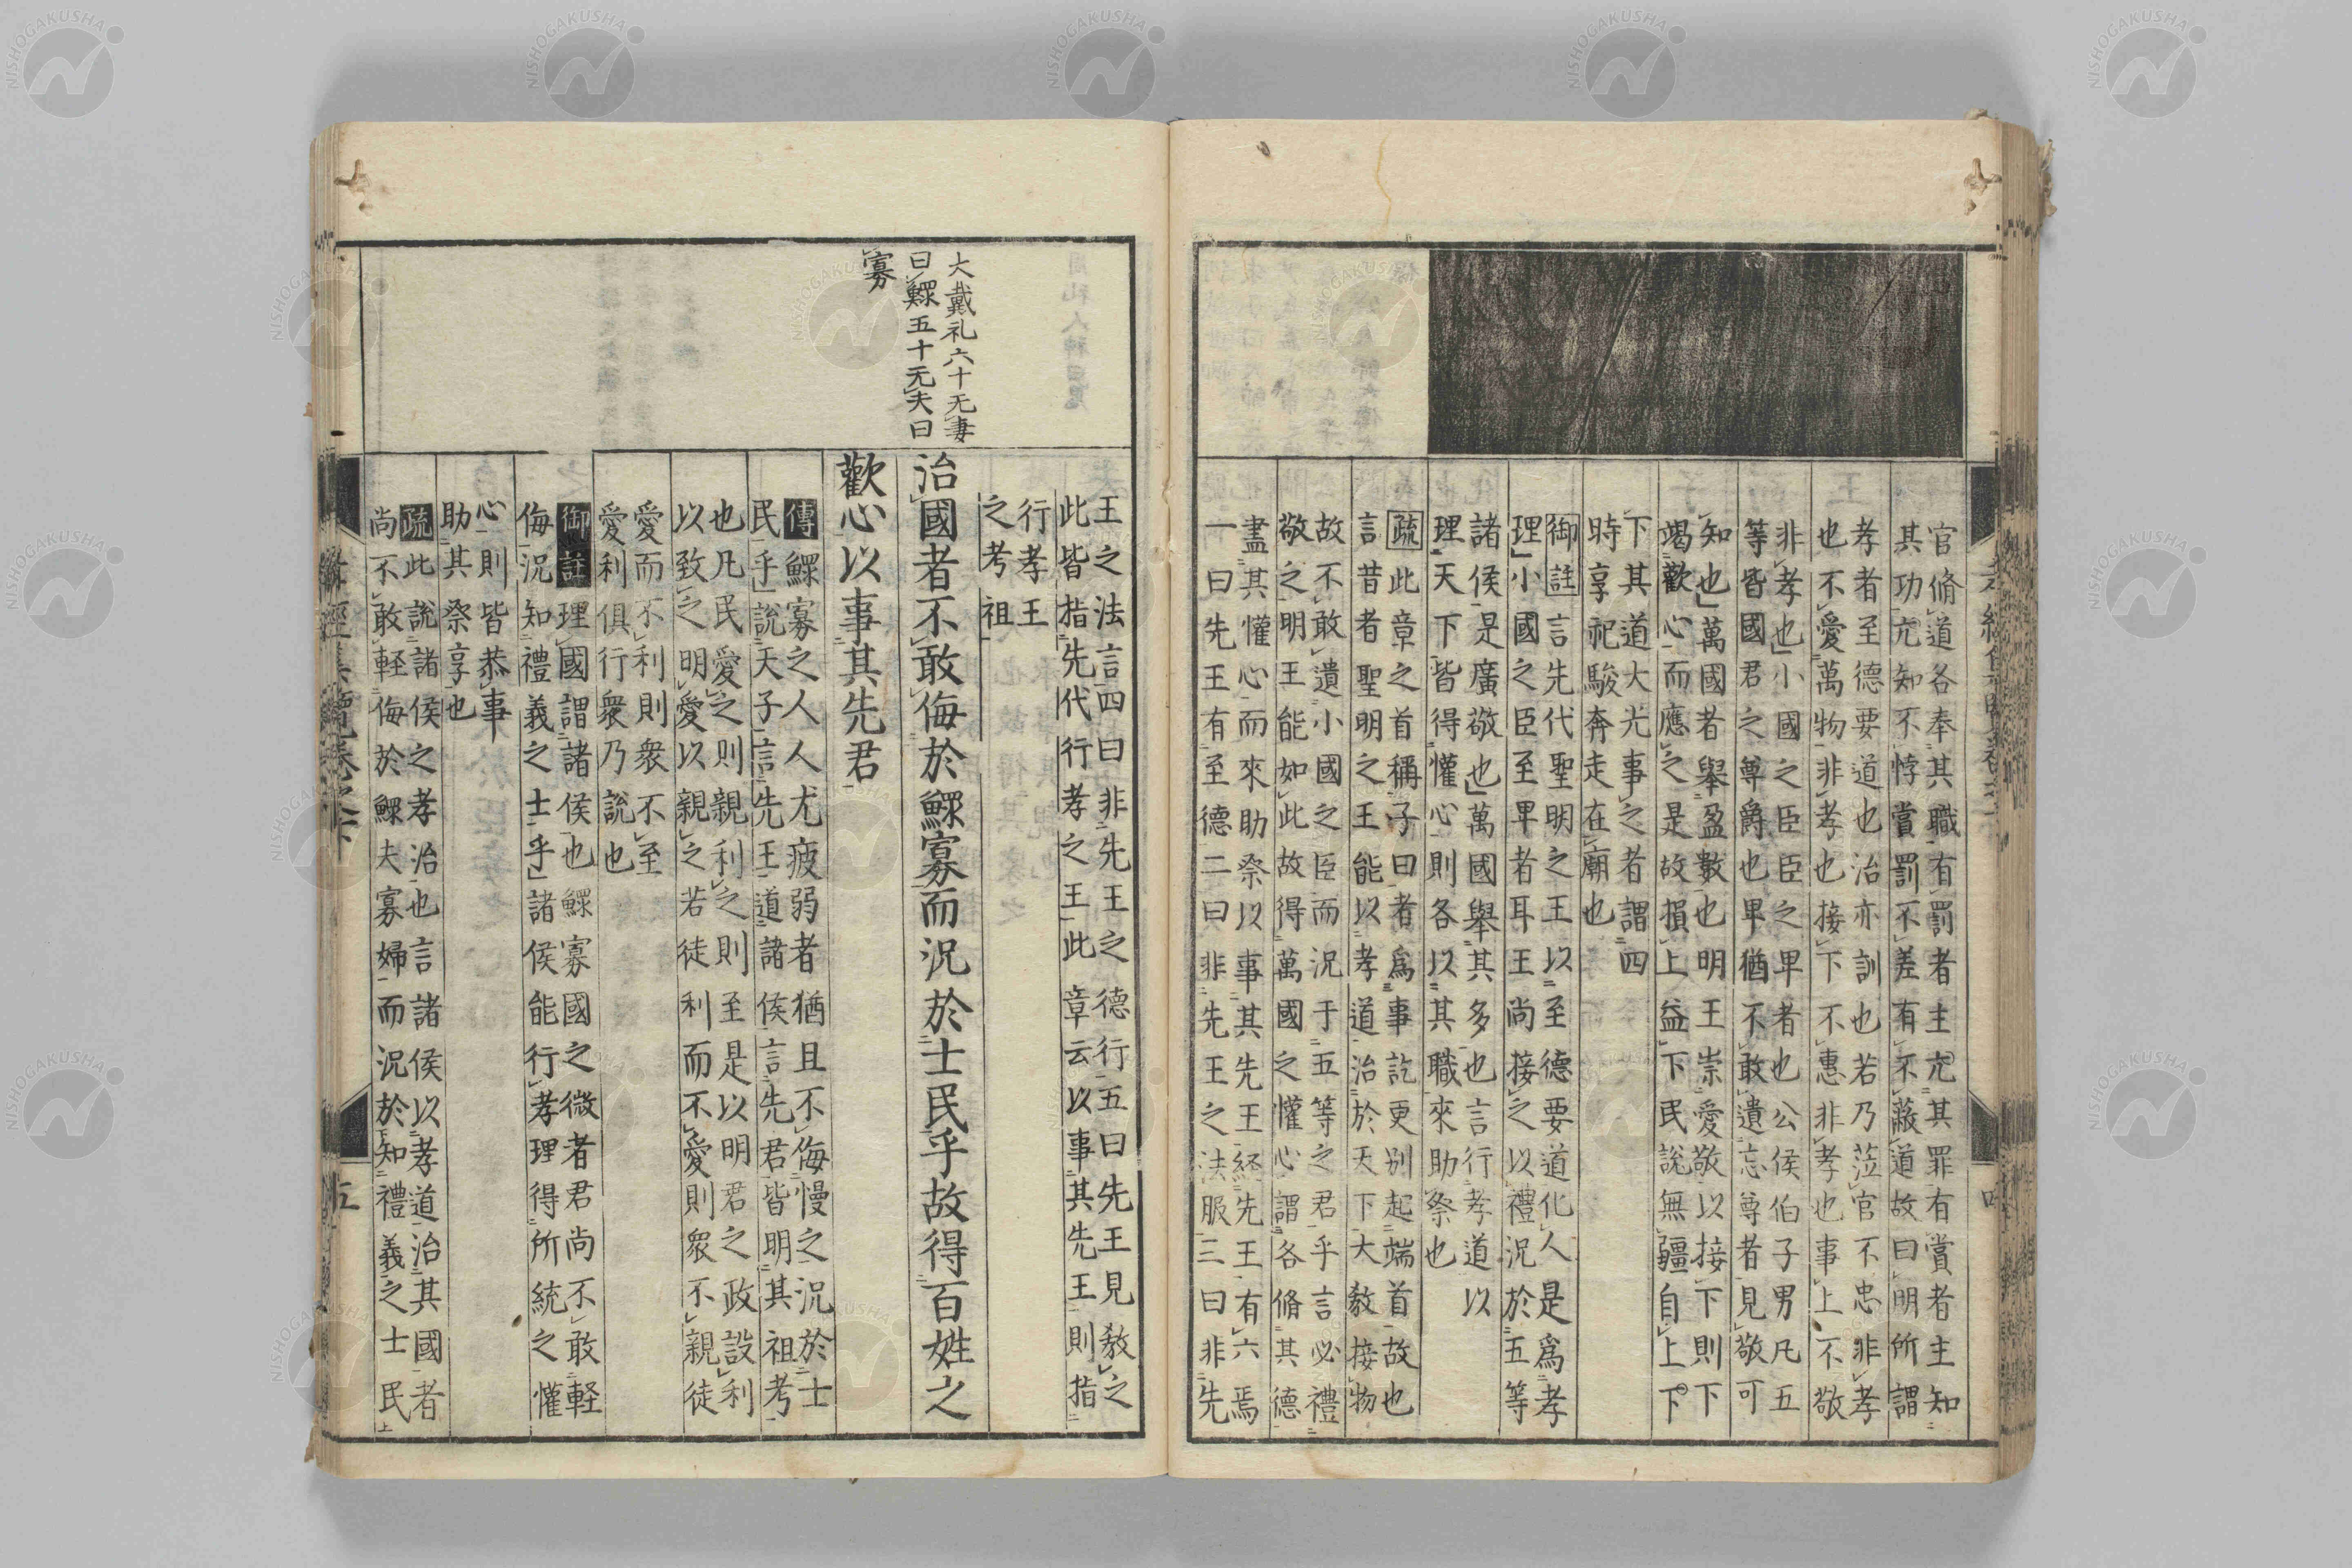 官脩道各奉其職有罰者主充其罪有賞者主知
其功充知不悖賞罰不差有不蔽道故曰明所謂
孝者至德要道也治亦訓也若乃蒞官不忠非孝
也不愛萬物非孝也接下不惠非孝也事上不敬
非孝也小國之臣臣之卑者也公侯伯子男凡五
等皆國君之尊爵也卑猶不敢遺忘尊者見敬可
知也萬國者舉盈數也明王崇愛敬以接下則下
竭歡心而應之是故損上益下民說無疆自上下
下其道大光事之者謂四
時享祀駿奔走在廟也
御註言先代聖明之王以至德要道化人是爲孝
理小國之臣至卑者耳王尚接之以禮況於五等
諸侯是廣敬也萬國舉其多也言行孝道以
理天下皆得懽心則各以其職來助祭也
疏此章之首稱子曰者爲事訖更别起端首故也
言昔者聖明之王能以孝道治於天下大敎接物
故不敢遺小國之臣而況于五等之君乎言必禮
敬之明王能如此故得萬國之懽心謂各脩其德
盡其懽心而來助祭以事其先王經先王有六焉
一曰先王有至德二曰非先王之法服三曰非先
王之法言四曰非先王之德行五曰先王見敎之
此皆指先代行孝之王此章云以事其先王則指
行孝王
之考祖
治國者不敢侮於鰥寡而況於士民乎故得百姓之
歡心以事其先君
大戴礼六十无妻
曰鰥五十无夫曰
寡
傳鰥寡之人人尤疲弱者猶且不侮慢之況於士
民乎說天子言先王道諸侯言先君皆明其祖考
也凡民愛之則親利之則至是以明君之政設利
以致之明愛以親之若徒利而不愛則衆不親徒
愛而不利則衆不至
愛利俱行衆乃說也
御註理國謂諸侯也鰥寡國之微者君尚不敢軽
侮況知禮義之士乎諸侯能行孝理得所統之懽
心則皆恭事
助其祭享也
疏此說諸侯之孝治也言諸侯以孝道治其國者
尚不敢軽侮於鰥夫寡婦而況於知禮義之士民
五
NISHOGAKUSHA